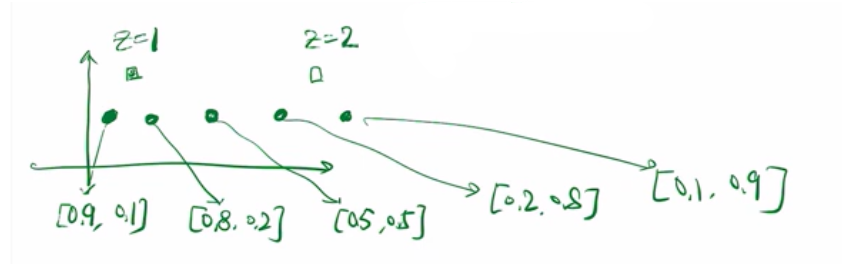 z=1 z=2
[0.9, 0.1] [0.8, 0.2] [0.5, 0.5] [0.2, 0.8] [0.1, 0.9]